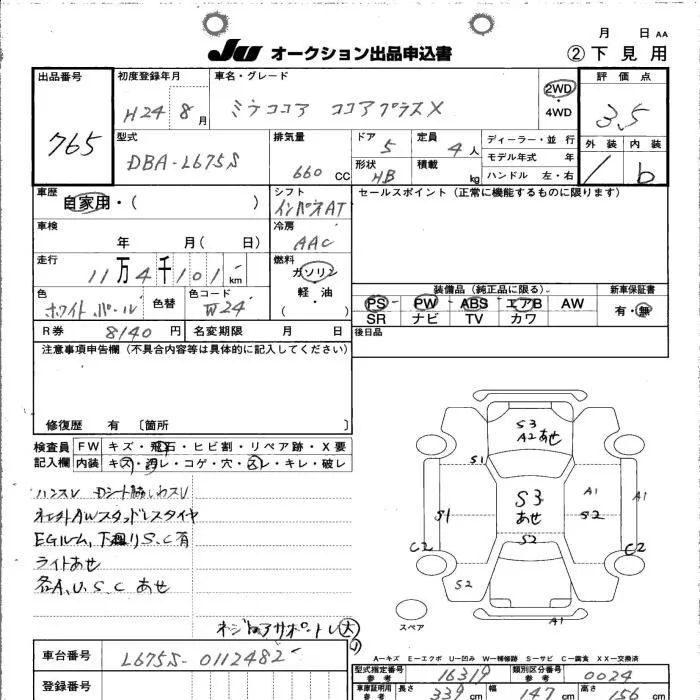 月 日 AA
JU オークション出品申込書 ②下見用
出品番号 765
初度登録年月 H24 8月
車名・グレード ミラココア ココアプラスX
2WD・4WD
評価点 3.5
外装 内装 b
型式 DBA-L675S
排気量 660 CC
ドア 5
定員 4人
形状 HB
積載 kg
ディーラー・並行
モデル年式 年
ハンドル 左・右
車歴 自家用・( )
シフト インパネAT
セールスポイント(正常に機能するものに限ります)
車検 年 月( 日)
冷房 AAC
走行 11万4千101 km
燃料 ガソリン・軽油 ( )
色 ホワイトパール 色替
色コード W24
装備品(純正品に限る) 新車保証書
PS PW ABS エアB AW 有・無
SR ナビ TV カワ
R券 8140円 名変期限 月 日
後日品
注意事項申告欄(不具合内容等は具体的に記入してください)
修復歴 有 〔箇所 〕
検査員記入欄
FW キズ・飛石・ヒビ割・リペア跡・X要
内装 キズ・汚レ・コゲ・穴・スレ・キレ・破レ
ハンスレ Dシート
AWスタッドレスタイヤ
EGルーム、下廻りS.C有
ライトあせ
各A、U、S、C あせ
S3
A2あせ
S1
S3
あせ
A1 A1
S1 S2
S2
C2 C2
S2
A1
スペア
A-キズ E-エクボ U-凹み W-補修跡 S-サビ C-腐食 XX-交換済
車台番号 L675S-0112482
登録番号
型式指定番号 参考 16319
類別区分番号 参考 0024
車庫証明用 参考 長さ 339cm 幅 147cm 高さ 156cm